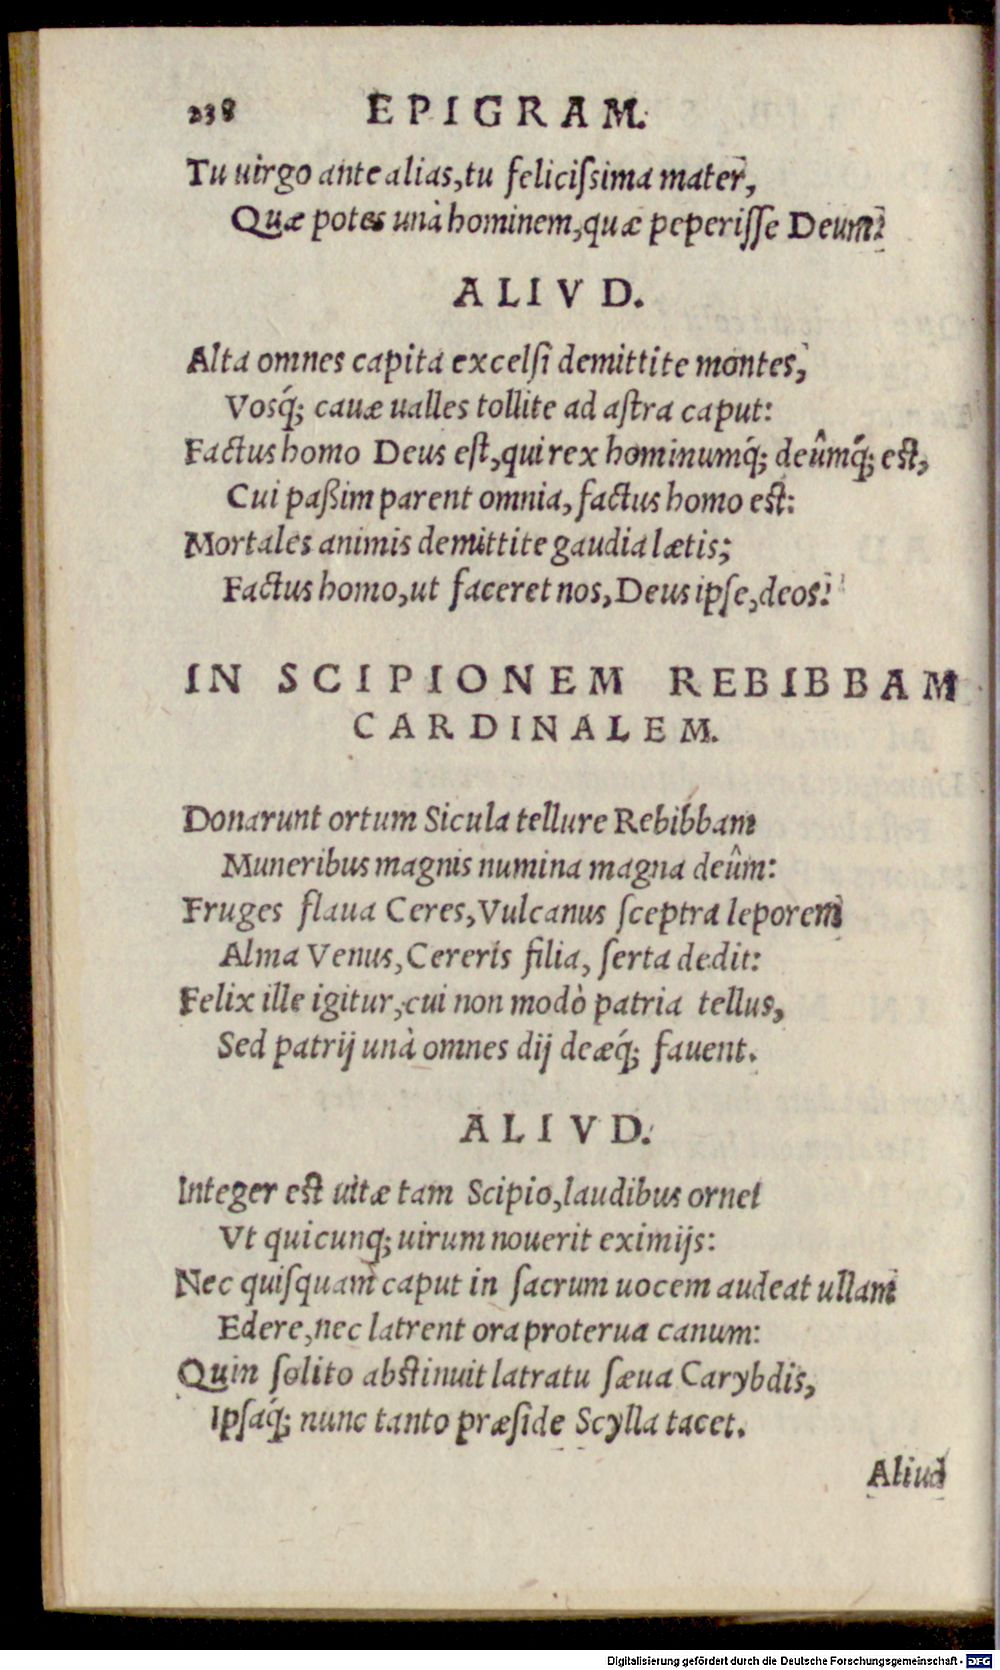 238 EPIGRAM.
Tu uirgo ante alias, tu feliciſsima mater,
Quæ potes unà hominem, quæ peperiſſe Deum?
ALIVD.
Alta omnes capita excelſi demittite montes,
Vosq́; cauæ ualles tollite ad aſtra caput:
Factus homo Deus eſt, qui rex hominumq́; deûmq́; eſt,
Cui paßim parent omnia, factus homo eſt:
Mortales animis demittite gaudia lætis;
Factus homo, ut faceret nos, Deus ipſe, deos.
IN SCIPIONEM REBIBBAM
CARDINALEM.
Donarunt ortum Sicula tellure Rebibbam
Muneribus magnis numina magna deûm:
Fruges flaua Ceres, Vulcanus ſceptra leporem
Alma Venus, Cereris filia, ſerta dedit:
Felix ille igitur, cui non modò patria tellus,
Sed patrij unà omnes dij deæq́; fauent.
ALIVD.
Integer eſt uitæ tam Scipio, laudibus ornet
Vt quicunq; uirum nouerit eximijs:
Nec quiſquam caput in ſacrum uocem audeat ullam
Edere, nec latrent ora proterua canum:
Quin ſolito abſtinuit latratu ſæua Carybdis,
Ipſaq́; nunc tanto præſide Scylla tacet.
Aliud
Digitalisierung gefördert durch die Deutsche Forschungsgemeinschaft - DFG